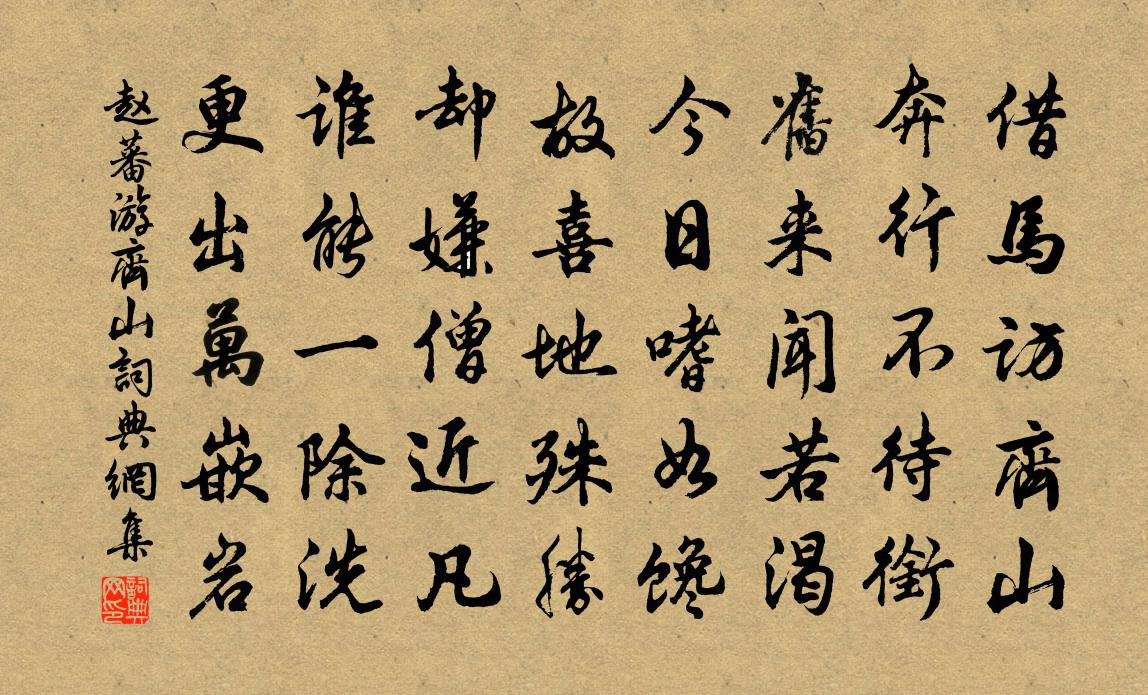 借馬訪齊山
奔行不待銜
舊来聞若渴
今日嗜如馋
故喜地殊勝
却嫌僧近凡
誰能一除洗
更出萬嵌岩
赵蕃游齊山詞典網集
詞典网印